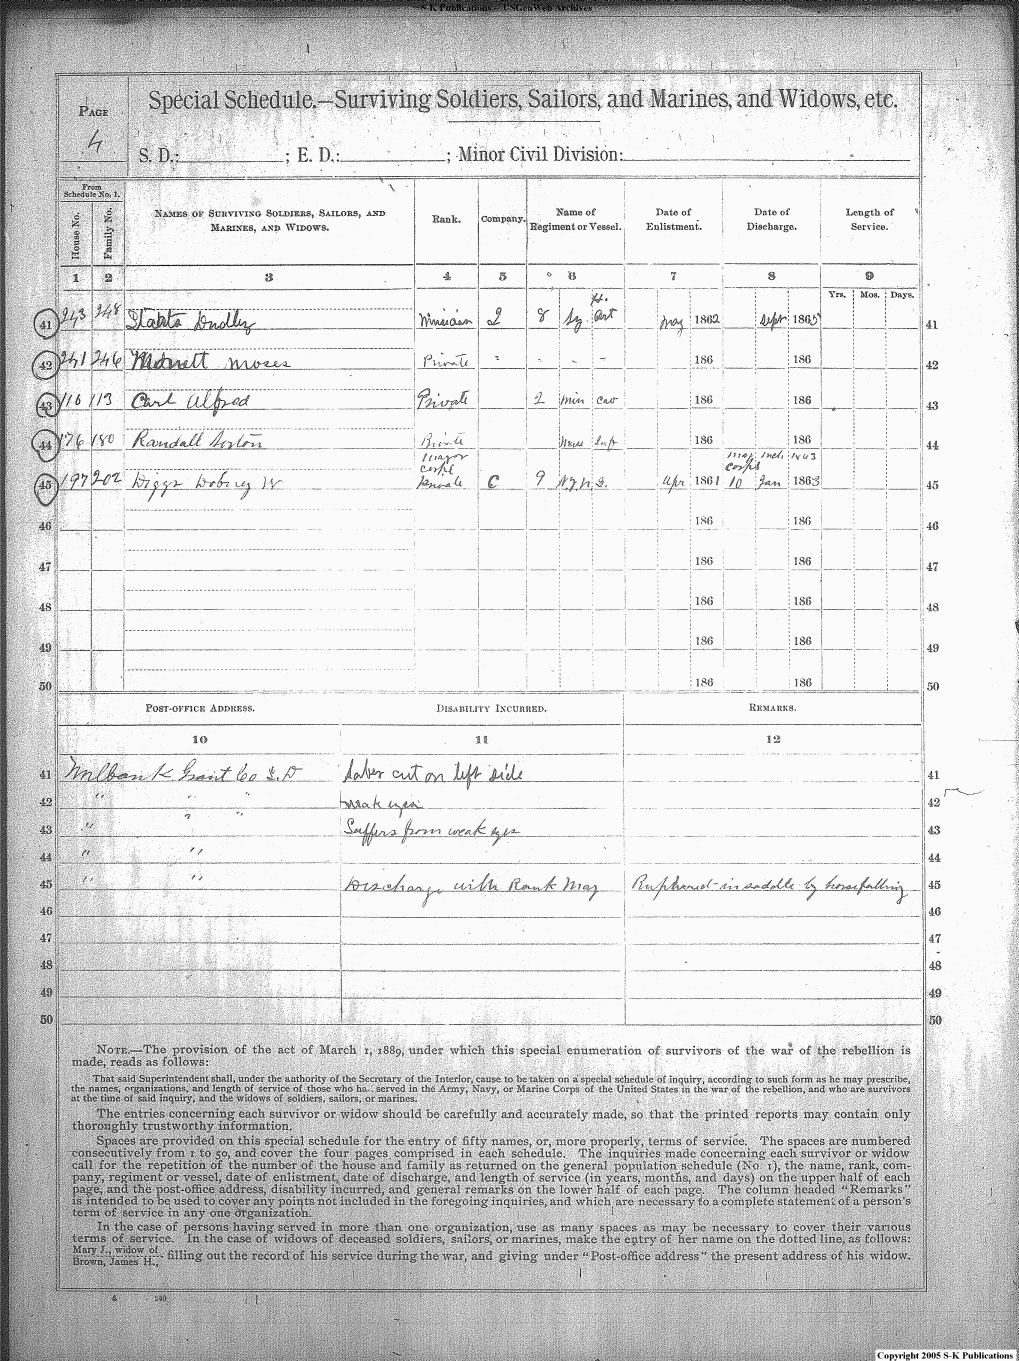 S-K Publications - USGenWeb Archives
PAGE
4
Special Schedule.—Surviving Soldiers, Sailors, and Marines, and Widows, etc.
S. D.: ; E. D.: ; Minor Civil Division:
From Schedule No. 1.
House No. Family No. NAMES OF SURVIVING SOLDIERS, SAILORS, AND MARINES, AND WIDOWS. Rank. Company. Name of Regiment or Vessel. Date of Enlistment. Date of Discharge. Length of Service.
1 2 3 4 5 6 7 8 9
Yrs. Mos. Days.
41 243 248 Dudley Musician 2 8 H. Art May 1862 Sept 1865 41
42 241 246 Moses Private " - - - 186 186 42
43 116 113 Carl Alfred Private 2 Min Cav 186 186 43
44 176 180 Randall Private Inft 186 186 44
major May 1863
corpl corpl
45 197 202 Diggs W Private C 9 N.Y. Apr 1861 10 Jan 1863 45
46 186 186 46
47 186 186 47
48 186 186 48
49 186 186 49
50 186 186 50
POST-OFFICE ADDRESS. DISABILITY INCURRED. REMARKS.
10 11 12
41 Milbank Grant Co S. D Saber cut on left side 41
42 " " " weak eyes 42
43 " " " Suffers from weak eyes 43
44 " " 44
45 " " Discharge with Rank Maj Ruptured in saddle by horse falling 45
46 46
47 47
48 48
49 49
50 50
NOTE.—The provision of the act of March 1, 1889, under which this special enumeration of survivors of the war of the rebellion is
made, reads as follows:
That said Superintendent shall, under the authority of the Secretary of the Interior, cause to be taken on a special schedule of inquiry, according to such form as he may prescribe,
the names, organizations, and length of service of those who had served in the Army, Navy, or Marine Corps of the United States in the war of the rebellion, and who are survivors
at the time of said inquiry, and the widows of soldiers, sailors, or marines.
The entries concerning each survivor or widow should be carefully and accurately made, so that the printed reports may contain only
thoroughly trustworthy information.
Spaces are provided on this special schedule for the entry of fifty names, or, more properly, terms of service. The spaces are numbered
consecutively from 1 to 50, and cover the four pages comprised in each schedule. The inquiries made concerning each survivor or widow
call for the repetition of the number of the house and family as returned on the general population schedule (No 1), the name, rank, com-
pany, regiment or vessel, date of enlistment, date of discharge, and length of service (in years, months, and days) on the upper half of each
page, and the post-office address, disability incurred, and general remarks on the lower half of each page. The column headed "Remarks"
is intended to be used to cover any points not included in the foregoing inquiries, and which are necessary to a complete statement of a person's
term of service in any one organization.
In the case of persons having served in more than one organization, use as many spaces as may be necessary to cover their various
terms of service. In the case of widows of deceased soldiers, sailors, or marines, make the entry of her name on the dotted line, as follows:
Mary J., widow of
Brown, James H., filling out the record of his service during the war, and giving under "Post-office address" the present address of his widow.
4 240
Copyright 2005 S-K Publications